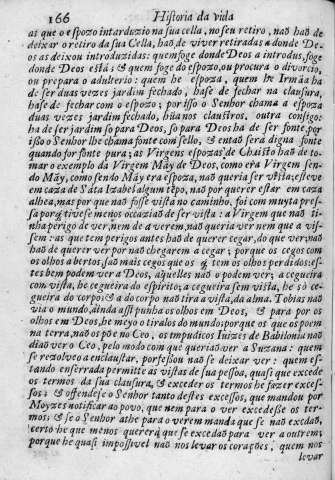 166 Historia da vida
as que o espozo intarduzio na sua cella, no seu retiro, naõ haõ de
deixar o retiro da sua Cella, haõ de viver retiradas adonde De-
os as deixou introduzidas: quem foge donde Deos a introdus, foge
donde Deos està; & quem foge do espozo, ou procura o divorcio,
ou prepara o adulterio: quem he espoza, quem he Irmãa ha
de ser duas vezes jardim fechado, hase de fechar na clausura,
hase de fechar com o espozo; por isso o Senhor chama a espoza
duas vezes jardim fechado, hũa nos claustros, outra consigo:
ha de ser jardim so para Deos, so para Deos ha de ser fonte, por
isso o Senhor lhe chama fonte com sello, & entaõ sera digna fonte
quando for fonte pura; as Virgens espozas de Christo haõ de to-
mar o exemplo da Virgem Mãy de Deos, como era Virgem sen-
do Mãy, como sendo Mãy era espoza, naõ queria ser vista; esteve
em caza de Santa Izabel algum tẽpo, naõ por querer estar em caza
alhea, mas por que naõ fosse vista no caminho, foi com muyta pres-
sa por q̃ tivese menos occaziaõ de ser vista: a Virgem que naõ ti-
nha perigo de ver, nem de a verem, naõ queria ver nem que a vis-
sem: as que tem perigos antes haõ de querer cegar, do que ver; naõ
haõ de querer ver por naõ chegarem a cegar; porque os cegos com
os olhos abertos, saõ mais cegos que os q̃ tem os olhos perdidos: es-
tes bem podem ver a Deos, aquelles naõ o podem ver; a cegueira
com vista, he cegueira do espirito; a cegueira sem vista, he so ce-
gueira do corpo; & a do corpo naõ tira a vista, da alma. Tobias naõ
via o mundo, ainda assi punha os olhos em Deos, & para por os
olhos em Deos, he meyo o tiralos do mundo: porque os que os poem
na terra, naõ os põe no Ceo, os impudicos Iuizes de Babilonia naõ
diaõ ver o Ceo, pelo modo com que queriaõ ver a Suzana: quem
se rezolveo a enclaustar, porfessou naõ se deixar ver: quem es-
tando enserrada permitte as vistas de sua pessoa, quasi que excede
os termos da sua clausura, & exceder os termos he fazer exces-
sos: & offendese o Senhor tanto destes excessos, que mandou por
Moyzes notificar ao povo, que nem para o ver excedesse os ter-
mos; & se o Senhor athe para o verem manda que se naõ excdaõ,
certo he que menos quererá que se excedaõ para ver a outrem;
porque he quasi impossivel naõ nos levar os coraçoẽs, quem nos
levar